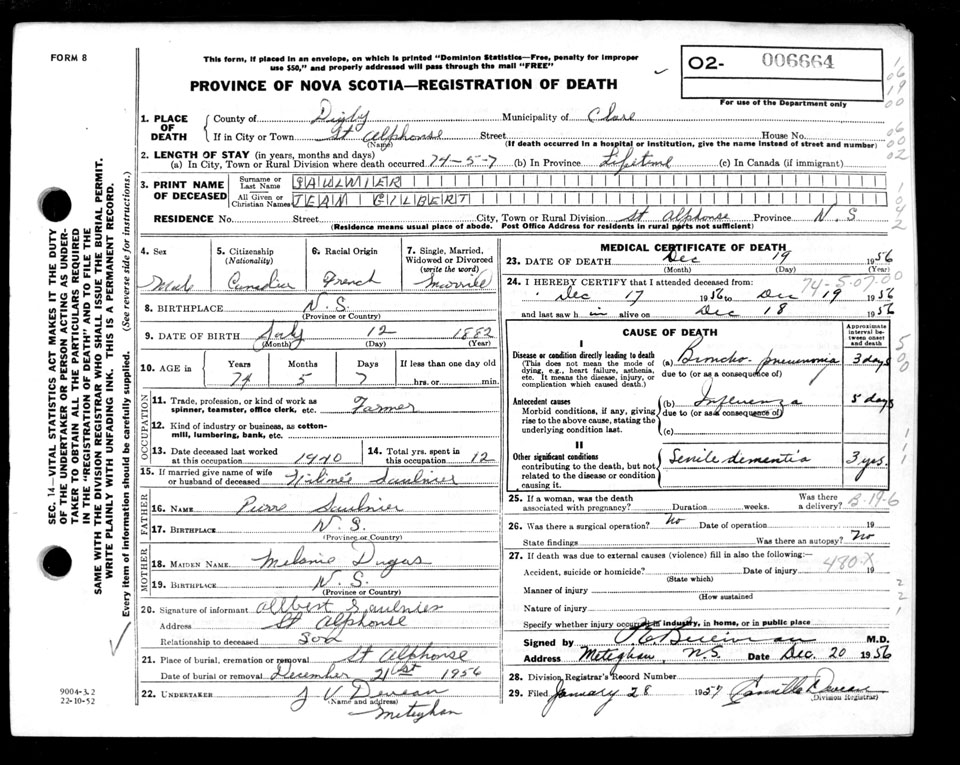 FORM 8
This form, if placed in an envelope, on which is printed "Dominion Statistics—Free, penalty for improper
use $50," and properly addressed will pass through the mail "FREE"
PROVINCE OF NOVA SCOTIA—REGISTRATION OF DEATH
O2- 006664
For use of the Department only
1. PLACE OF DEATH
County of Digby Municipality of Clare
If in City or Town St Alphonse Street House No.
(Name) (If death occurred in a hospital or institution, give the name instead of street and number)
2. LENGTH OF STAY (in years, months and days)
(a) In City, Town or Rural Division where death occurred 74-5-7 (b) In Province Lifetime (c) In Canada (if immigrant)
3. PRINT NAME OF DECEASED
Surname or Last Name SAULNIER
All Given or Christian Names JEAN GILBERT
RESIDENCE No. Street City, Town or Rural Division St Alphonse Province N.S
(Residence means usual place of abode. Post Office Address for residents in rural parts not sufficient)
4. Sex Male
5. Citizenship (Nationality) Canadian
6. Racial Origin French
7. Single, Married, Widowed or Divorced (write the word) Married
8. BIRTHPLACE N.S.
(Province or Country)
9. DATE OF BIRTH July 12 1882
(Month) (Day) (Year)
10. AGE in Years Months Days If less than one day old
74 5 7 hrs. or min.
OCCUPATION
11. Trade, profession, or kind of work as spinner, teamster, office clerk, etc. Farmer
12. Kind of industry or business, as cotton-mill, lumbering, bank, etc.
13. Date deceased last worked at this occupation 1940
14. Total yrs. spent in this occupation 12
15. If married give name of wife or husband of deceased Saulnier
FATHER
16. NAME Pierre Saulnier
17. BIRTHPLACE N.S.
(Province or Country)
MOTHER
18. MAIDEN NAME Melanie Dugas
19. BIRTHPLACE N.S.
(Province or Country)
20. Signature of informant Allbert Saulnier
Address St Alphonse
Relationship to deceased Son
21. Place of burial, cremation or removal St Alphonse
Date of burial or removal December 21st 1956
22. UNDERTAKER J V Deveau
(Name and address)
Meteghan
MEDICAL CERTIFICATE OF DEATH
23. DATE OF DEATH Dec 19 1956
(Month) (Day) (Year)
24. I HEREBY CERTIFY that I attended deceased from:
74-5-07-00
Dec 17 1956 to Dec 19 1956
and last saw him alive on Dec 18 1956
CAUSE OF DEATH
Approximate interval between onset and death
I
Disease or condition directly leading to death
(This does not mean the mode of dying, e.g., heart failure, asthenia, etc. It means the disease, injury, or complication which caused death.)
(a) Broncho-pneumonia 3 days
due to (or as a consequence of)
Antecedent causes
Morbid conditions, if any, giving rise to the above cause, stating the underlying condition last.
(b) Influenza 5 days
due to (or as a consequence of)
(c)
II
Other significant conditions
contributing to the death, but not related to the disease or condition causing it.
Senile dementia 3 yrs.
25. If a woman, was the death associated with pregnancy? Duration weeks. Was there a delivery?
B-19-6
26. Was there a surgical operation? No Date of operation 19
State findings Was there an autopsy? No
27. If death was due to external causes (violence) fill in also the following:
480-X
Accident, suicide or homicide? Date of injury 19
(State which)
Manner of injury
(How sustained
Nature of injury
Specify whether injury occurred in industry, in home, or in public place
Signed by M.D.
Address Meteghan, N.S. Date Dec. 20 1956
28. Division Registrar's Record Number
29. Filed January 28 1957 Camille Deveau
(Division Registrar)
9004-3.2
22-10-52
SEC. 14—VITAL STATISTICS ACT MAKES IT THE DUTY
OF THE UNDERTAKER OR PERSON ACTING AS UNDER-
TAKER TO OBTAIN ALL THE PARTICULARS REQUIRED
IN THE "REGISTRATION OF DEATH" AND TO FILE THE
SAME WITH THE DIVISION REGISTRAR WHO SHALL ISSUE THE BURIAL PERMIT.
WRITE PLAINLY WITH UNFADING INK. THIS IS A PERMANENT RECORD.
Every item of information should be carefully supplied. (See reverse side for instructions.)